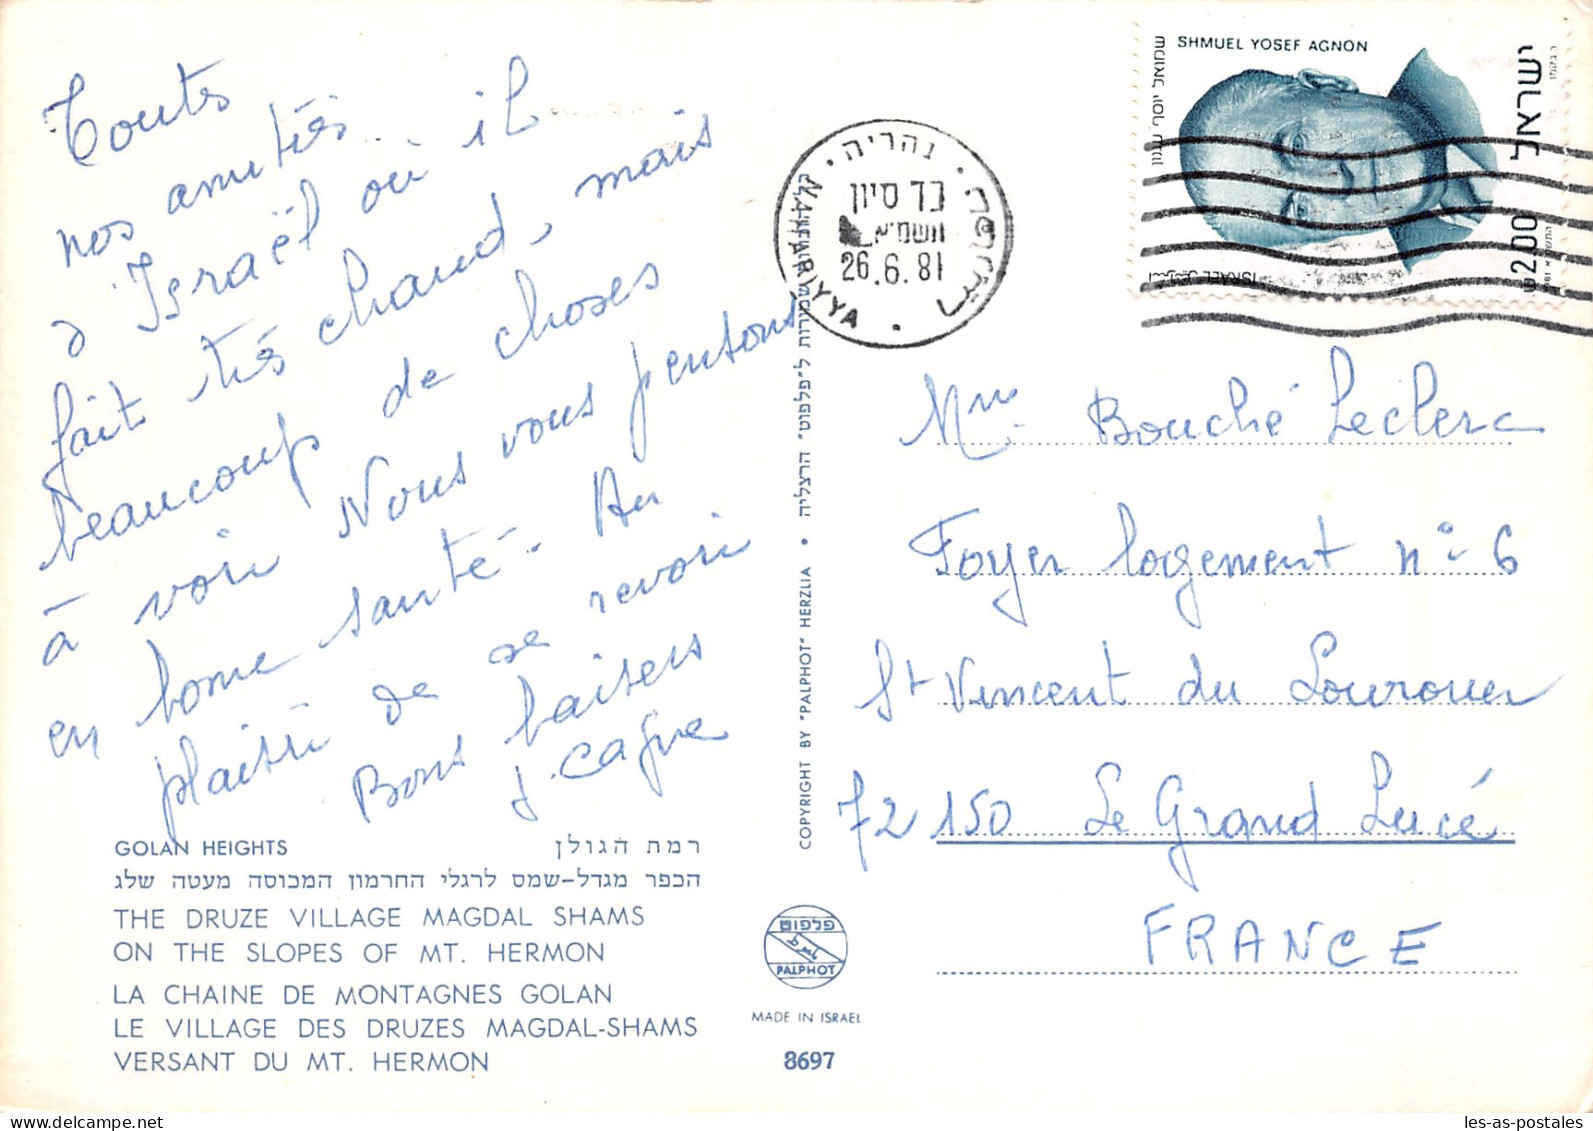 Toutes
nos amitiés
d'Israël où il
fait très chaud, mais
beaucoup de choses
à voir Nous vous pensons
en bonne santé. Au
plaisir de se revoir
Bons baisers
J. Cagne
GOLAN HEIGHTS רמת הגולן
הכפר מגדל-שמס לרגלי החרמון המכוסה מעטה שלג
THE DRUZE VILLAGE MAGDAL SHAMS
ON THE SLOPES OF MT. HERMON
LA CHAINE DE MONTAGNES GOLAN
LE VILLAGE DES DRUZES MAGDAL-SHAMS
VERSANT DU MT. HERMON
COPYRIGHT BY "PALPHOT" HERZLIA • שמורות ל"פלפוט" הרצליה
פלפוט
PALPHOT
MADE IN ISRAEL
8697
נהריה
כד סיון
תשמ"א
26.6.81
NAHARIYYA
SHMUEL YOSEF AGNON
שמואל יוסף עגנון
ישראל
2.00
ISRAEL
Mme Bouché Leclerc
Foyer logement n° 6
St Vincent du Lorouer
72150 Le Grand Lucé
FRANCE
les-as-postales